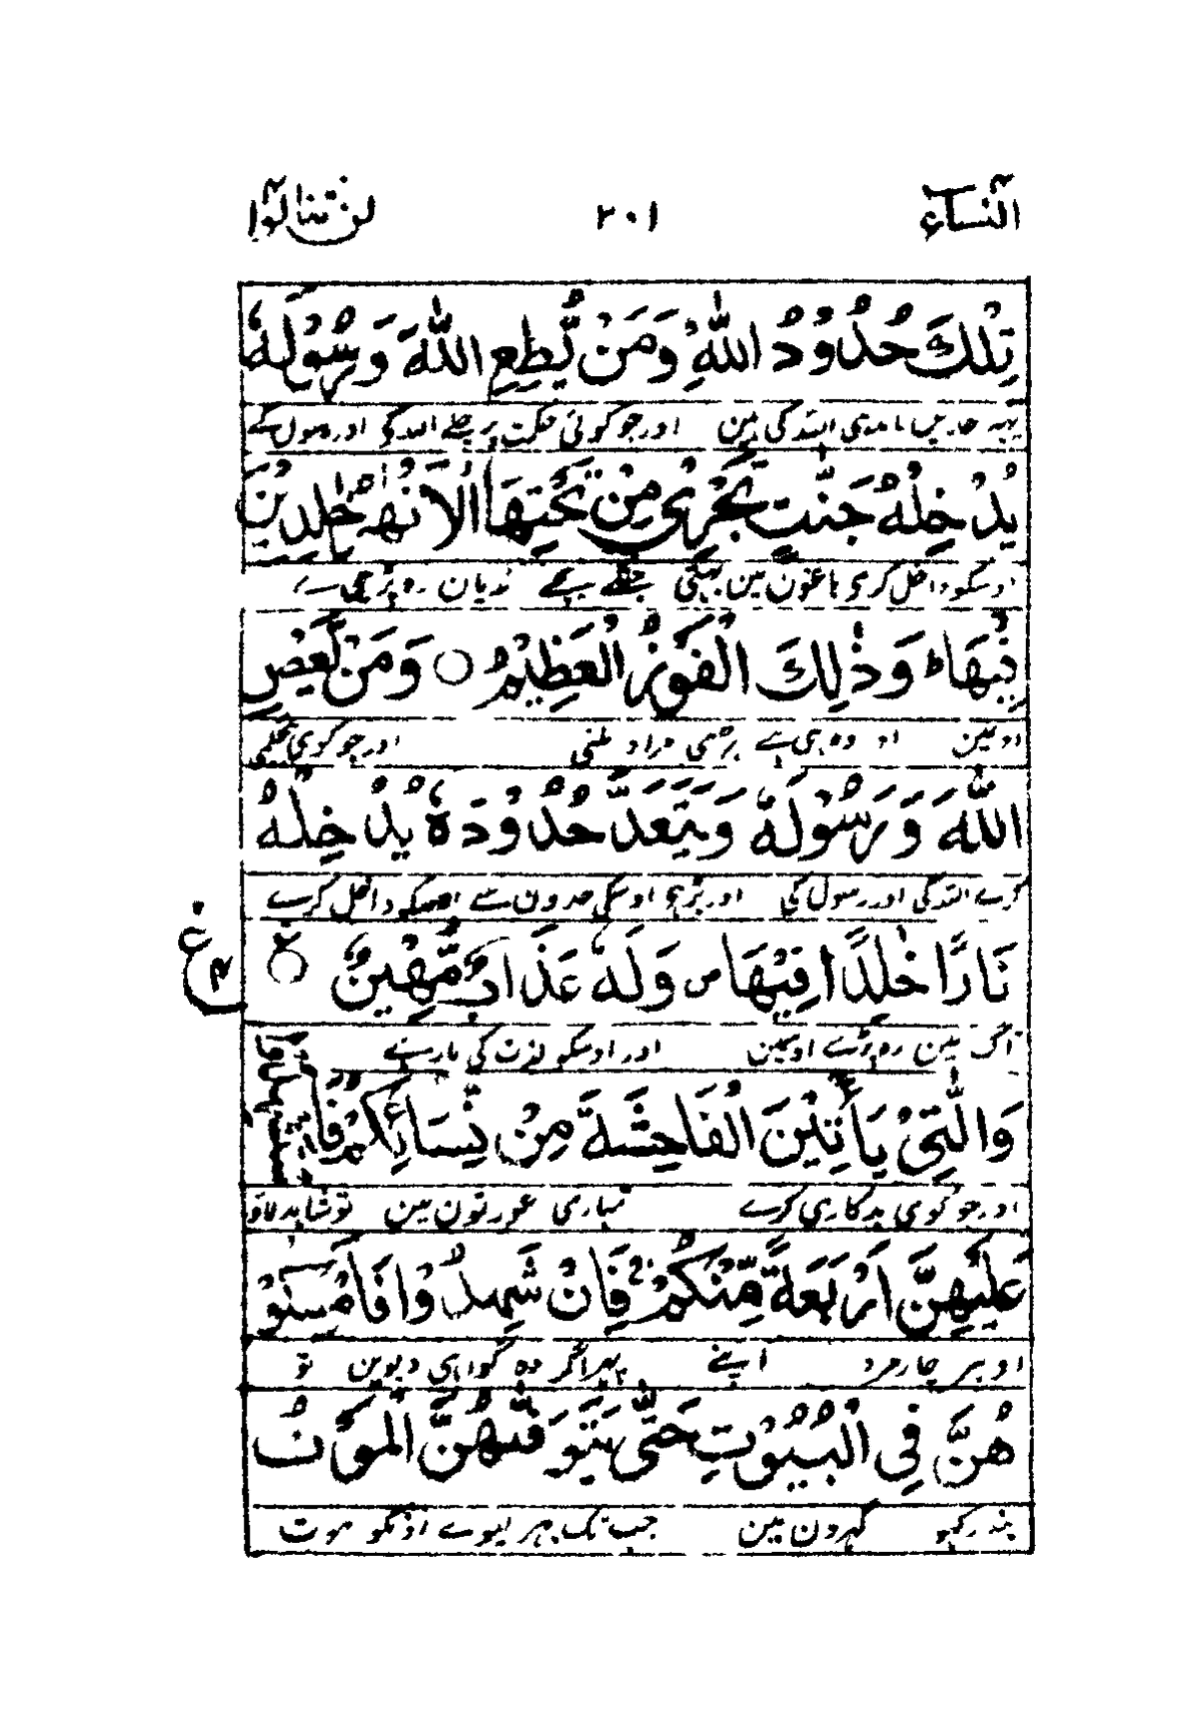 النساء ۲۰۱ لن تنالوا
تِلْكَ حُدُوْدُ اللّٰهِ وَمَنْ يُّطِعِ اللّٰهَ وَرَسُوْلَهٗ
یہہ حدیں باندی اللہ کی ہین اور جو کوئی حکمت پر چلے اللہ کے اور رسول کے
يُدْخِلْهُ جَنّٰتٍ تَجْرِيْ مِنْ تَحْتِهَا الْاَنْهٰرُ خٰلِدِيْنَ
اوسکو داخل کری باغون مین بہتی جنکے نیچے ندیان رہ پڑے
فِيْهَا ؕ وَذٰلِكَ الْفَوْزُ الْعَظِيْمُ ○ وَمَنْ يَّعْصِ
اونمین او وہ ہی ہے بڑی مراد ملنی اور جو کوی بیحکمی
اللّٰهَ وَرَسُوْلَهٗ وَيَتَعَدَّ حُدُوْدَهٗ يُدْخِلْهُ
کرے اللہ کی اور رسول کی اور بڑہی اوسکی حدون سے اوسکو داخل کرے
نَارًا خٰلِدًا فِيْهَا ص وَلَهٗ عَذَابٌ مُّهِيْنٌ ○ ع
آگ مین رہ پڑے اوسمین اور اوسکو ذلت کی مار ہے
وَالّٰتِيْ يَاْتِيْنَ الْفَاحِشَةَ مِنْ نِّسَائِكُمْ فَاسْتَشْهِدُوْا
اور جو کوی بدکاری کرے تمہاری عورتون مین تو شاہد لاو
عَلَيْهِنَّ اَرْبَعَةً مِّنْكُمْ ۚ فَاِنْ شَهِدُوْا فَاَمْسِكُوْ
اون پر چار مرد اپنے پہر اگر وہ گواہی دیوین تو
هُنَّ فِي الْبُيُوْتِ حَتّٰى يَتَوَفّٰهُنَّ الْمَوْتُ
بند رکہو گہرون مین جب تک بہر لیوے اونکو موت